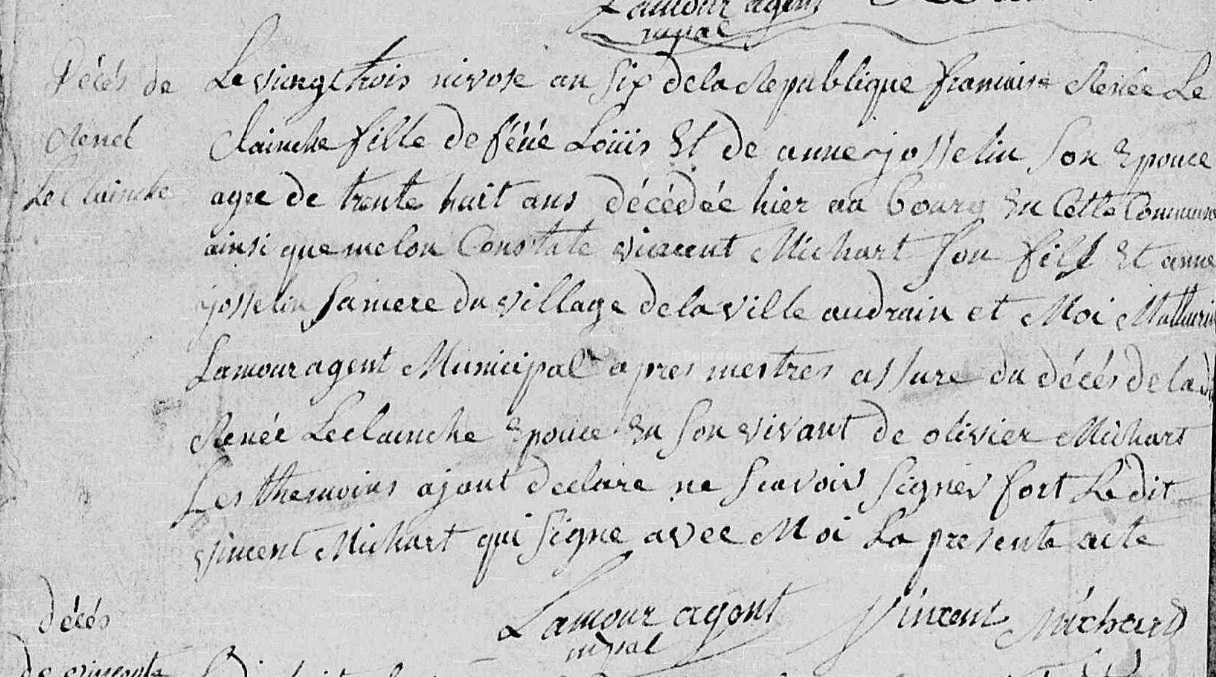 Lamour agent
mpal
Décés de
René
Le Clainche
Le vingt trois nivose an six de la Republique francaise Renée Le
Clainche fille de féüé Loüis Et de anne josselin son Epouce
agee de trente huit ans décédée hier au bourg En Cette Commune
ainsi que me lon Constate vincent Michart son fils Et anne
josselin sa mere du village de la ville audrain et Moi Mathurin
Lamour agent Municipal apres mestres assure du décés de la
Renée Leclainche Epouce En son vivant de olivier Michart
Les themoins ajant declare ne scavoir signer fort Le dit
vincent Michart qui signe avec Moi La presente acte
Lamour agent Vincent Michard
mpal
Décés
de